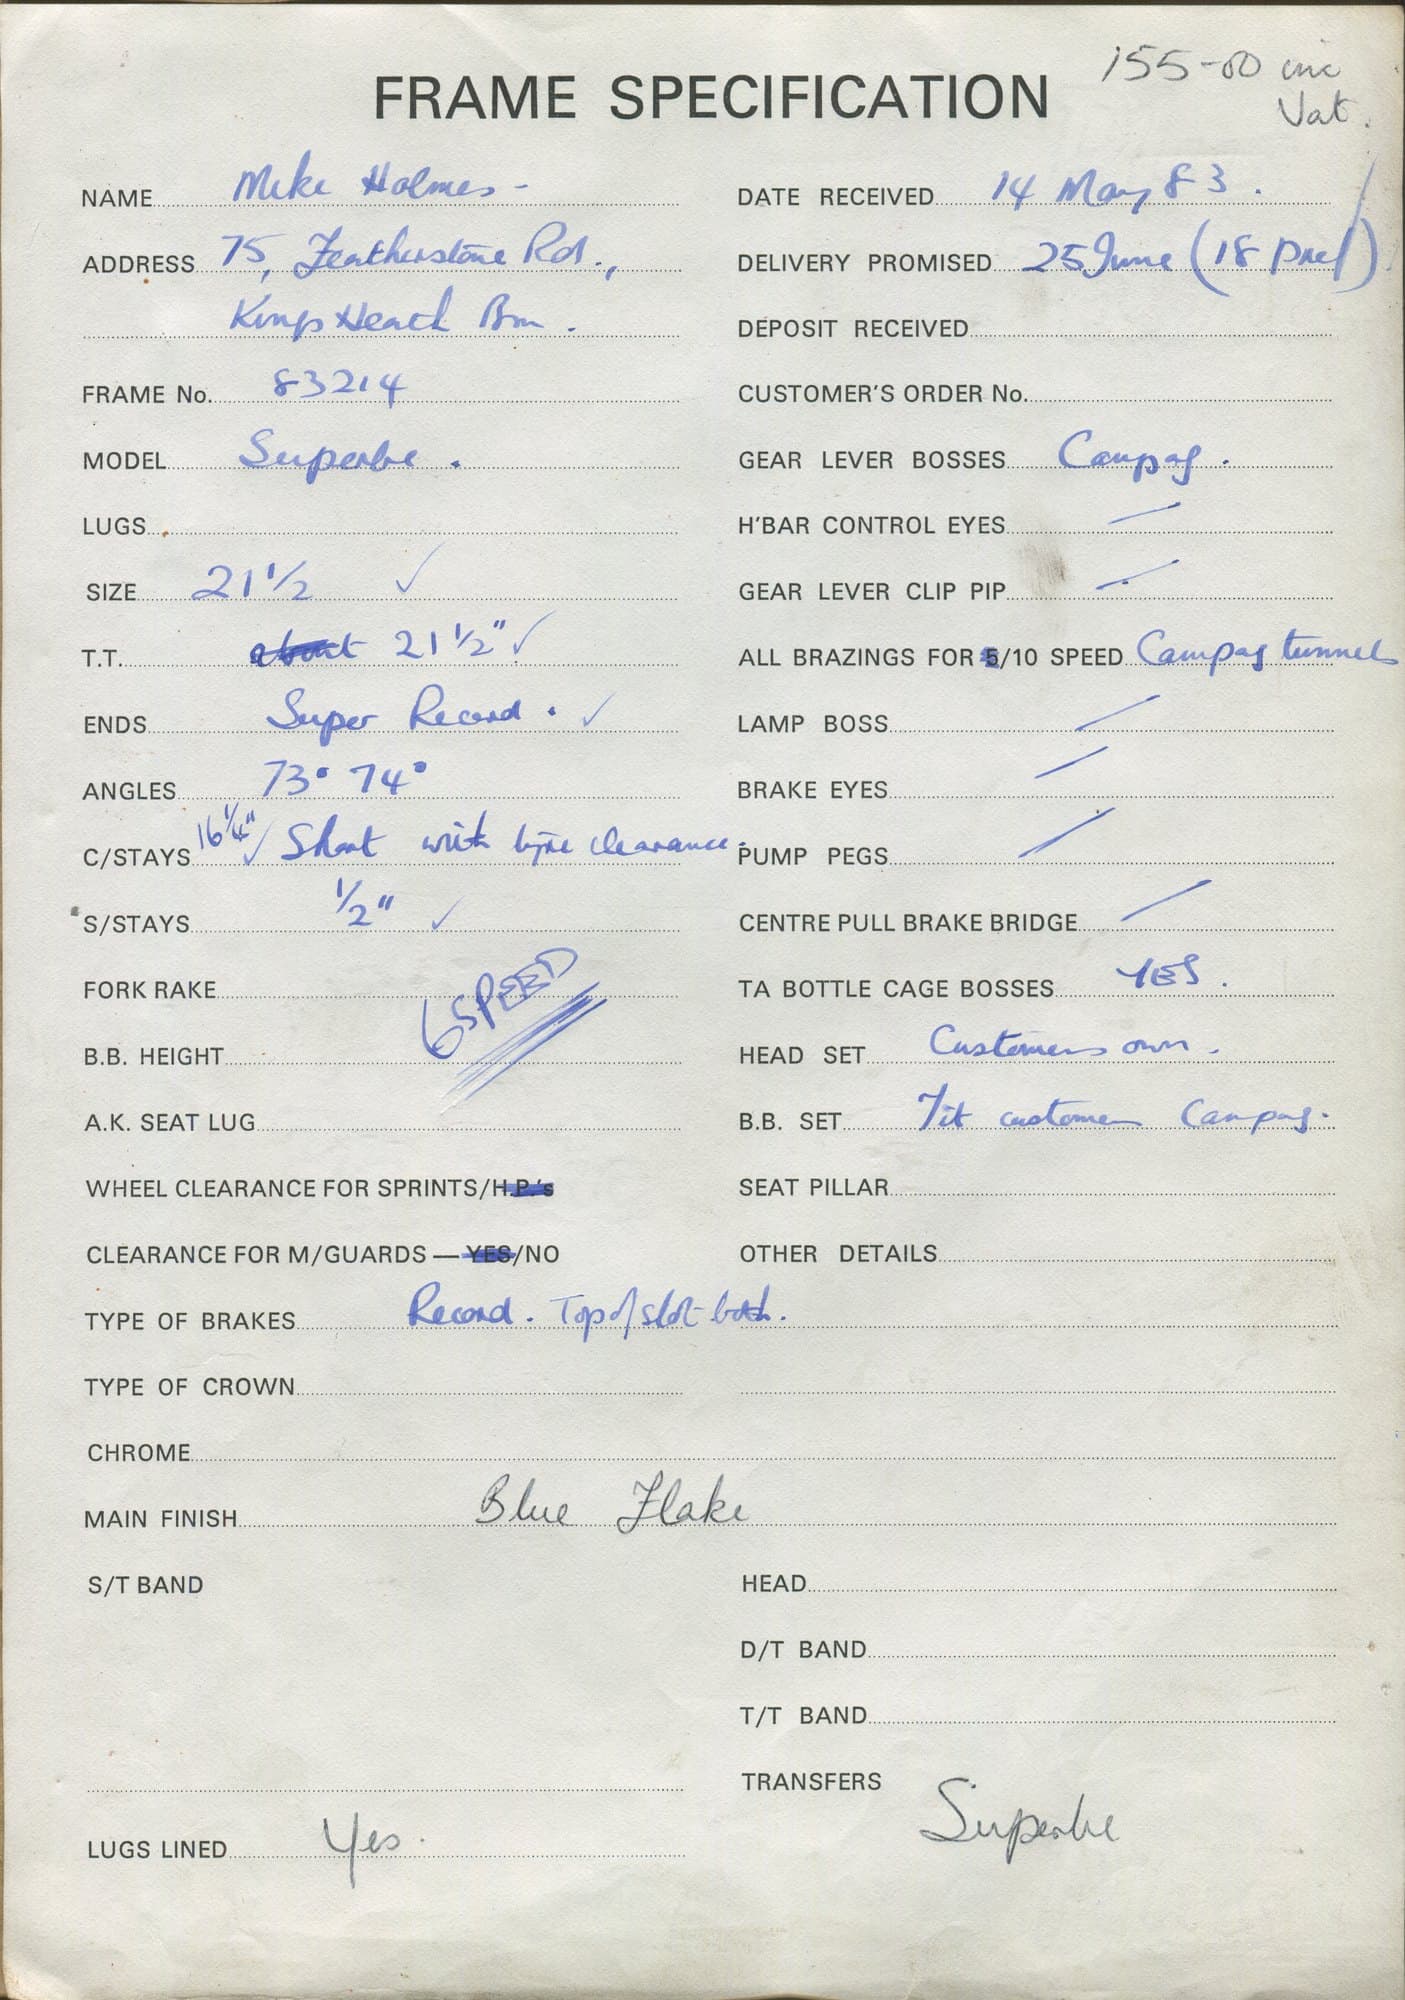 155-00 inc
Vat.
FRAME SPECIFICATION
NAME Mike Holmes -
ADDRESS 75, Featherstone Rd.,
Kings Heath Bm.
FRAME No. 83214
MODEL Superbe.
LUGS
SIZE 21 1/2 ✓
T.T. about 21 1/2" ✓
ENDS Super Record. ✓
ANGLES 73° 74°
C/STAYS 16 1/4" ✓ Short with tyre clearance.
S/STAYS 1/2" ✓
FORK RAKE
6 SPEED
B.B. HEIGHT
A.K. SEAT LUG
WHEEL CLEARANCE FOR SPRINTS/H.P.'s
CLEARANCE FOR M/GUARDS — YES/NO
TYPE OF BRAKES Record. Top of slot both.
TYPE OF CROWN
CHROME
MAIN FINISH Blue Flake
S/T BAND
LUGS LINED Yes.
DATE RECEIVED 14 May 83.
DELIVERY PROMISED 25 June (18 Pref)
DEPOSIT RECEIVED
CUSTOMER'S ORDER No.
GEAR LEVER BOSSES Campag.
H'BAR CONTROL EYES /
GEAR LEVER CLIP PIP /
ALL BRAZINGS FOR 5/10 SPEED Campag tunnels
LAMP BOSS /
BRAKE EYES /
PUMP PEGS /
CENTRE PULL BRAKE BRIDGE /
TA BOTTLE CAGE BOSSES YES.
HEAD SET Customers own.
B.B. SET Fit customers Campag.
SEAT PILLAR
OTHER DETAILS
HEAD
D/T BAND
T/T BAND
TRANSFERS Superbe